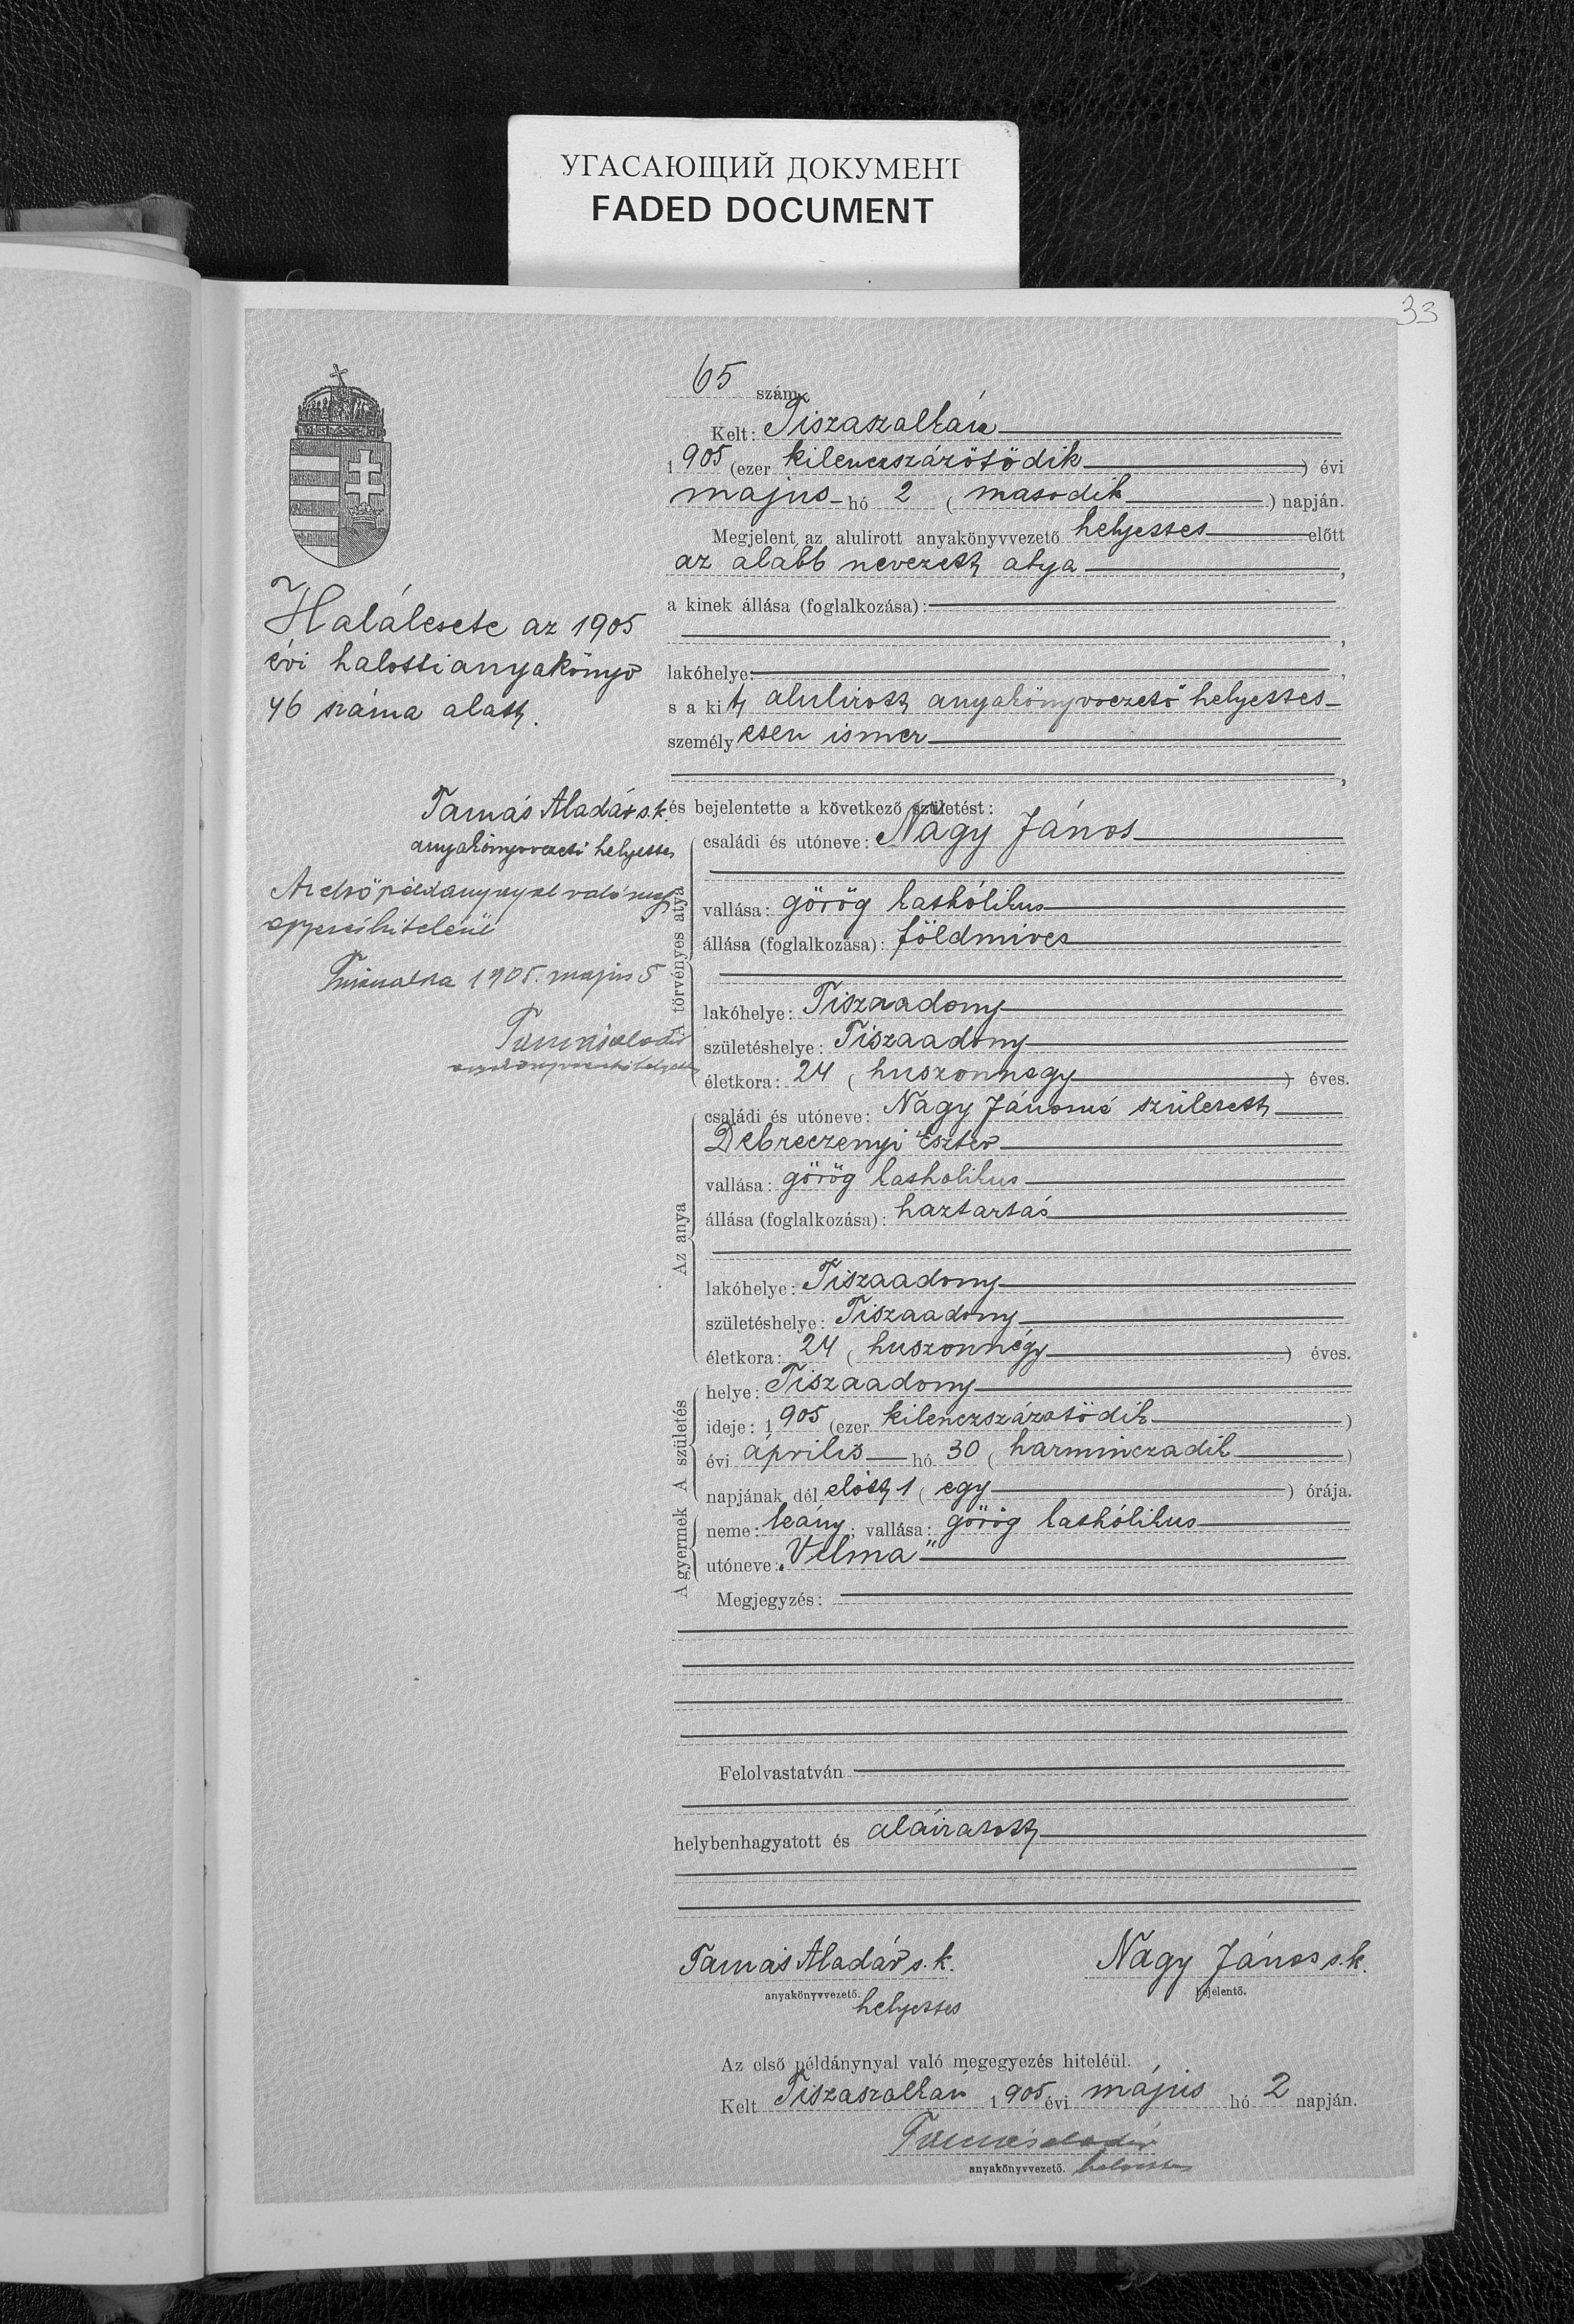 УГАСАЮЩИЙ ДОКУМЕНТ
FADED DOCUMENT
33
65 szám.
Kelt: Tiszaszalkán
1905 (ezer kilenczszázötödik ) évi
majus hó 2 ( masodik ) napján.
Megjelent az alulirott anyakönyvvezető helyettes előtt
az alább nevezett atya ,
a kinek állása (foglalkozása):
,
lakóhelye: ,
s a kit alulirott anyakönyvvezető helyettes
személyesen ismer
,
és bejelentette a következő születést:
Halálesete az 1905
évi halotti anyakönyv
46 száma alatt.
Tamás Aladár s.k.
anyakönyvvezető helyettes
Az első példánynyal való meg
egyezés hiteleül
1905. majus 5
Tamás Aladár
anyakönyvvezető helyettes
A törvényes atya
családi és utóneve: Nagy János
vallása: görög katholikus
állása (foglalkozása): földmives
lakóhelye: Tiszaadony
születéshelye: Tiszaadony
életkora: 24 ( huszonnegy ) éves.
Az anya
családi és utóneve: Nagy Jánosné született
Debreczenyi Eszter
vallása: görög katholikus
állása (foglalkozása): haztartás
lakóhelye: Tiszaadony
születéshelye: Tiszaadony
életkora: 24 ( huszonnégy ) éves.
A születés
helye: Tiszaadony
ideje: 1905 (ezer kilenczszázötödik )
évi április hó 30 ( harminczadik )
napjának dél előtt 1 ( egy ) órája.
A gyermek
neme: leány; vallása: görög kathólikus
utóneve: „Vilma"
Megjegyzés:
Felolvastatván
helybenhagyatott és aláiratott
Tamás Aladár s.k. Nagy János s.k.
anyakönyvvezető. bejelentő.
helyettes
Az első példánynyal való megegyezés hiteléül.
Kelt Tiszaszalkán 1905 évi május hó 2 napján.
Tamás Aladár
anyakönyvvezető. helyettes